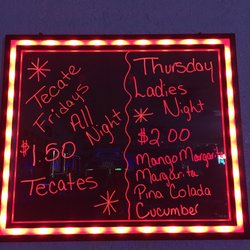 Tecate
Fridays
All
Night
$1.50
Tecates
Thursday
Ladies
Night
$2.00
Mango Margarita
Margarita
Pina Colada
Cucumber